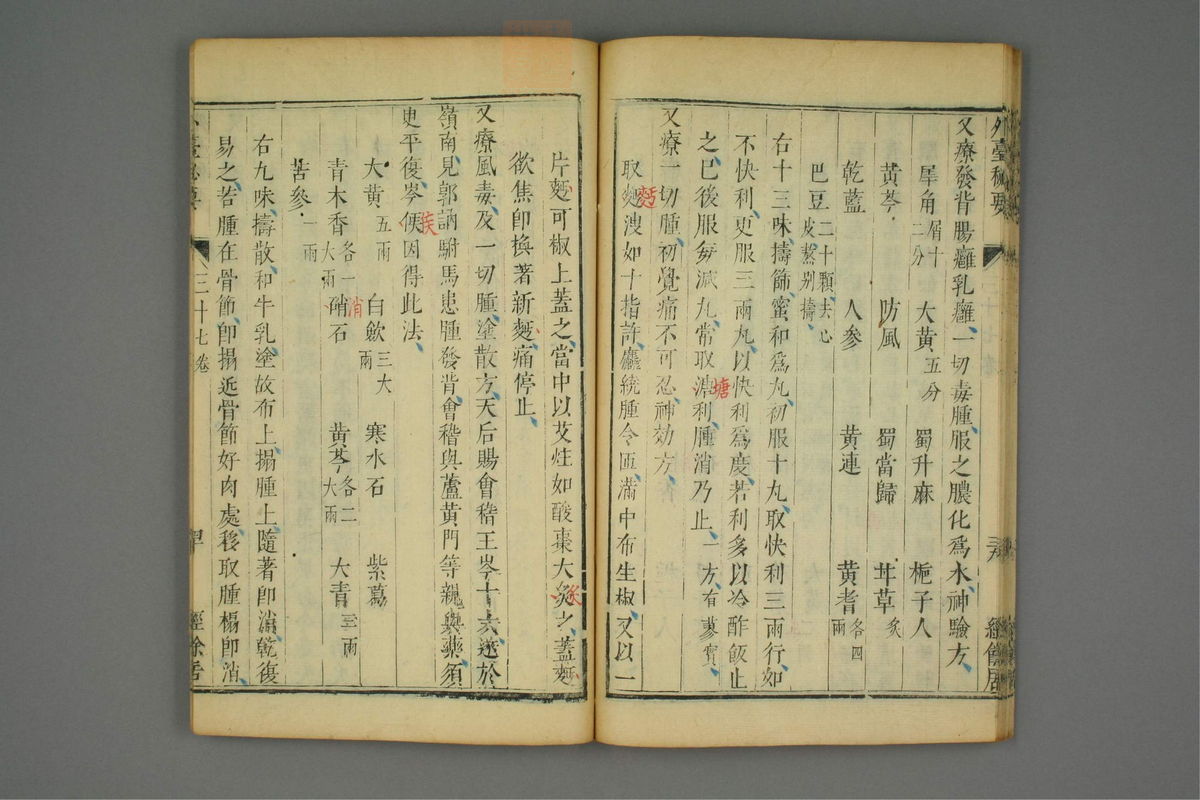 外臺秘要
三十七卷
經餘居
又療發背腸癰乳癰一切毒腫服之膿化爲水神驗方
犀角屑十二分 大黃五分 蜀升麻 梔子人
黃芩 防風 蜀當歸 甘草炙
乾藍 人參 黃連 黃耆各四兩
巴豆二十顆去心皮熬別擣
右十三味擣篩蜜和爲丸初服十丸取快利三兩行如
不快利更服三兩丸以快利爲度若利多以冷酢飯止
之已後服每減丸常取溏利腫消乃止一方有蓼實
塘
又療一切腫初覺痛不可忍神効方
取麪溲如十指許麤繞腫令匝滿中布生椒又以一
麪
片麪可椒上蓋之當中以艾炷如酸棗大灸之蓋麪
炙
欲焦即換著新麪痛停止
又療風毒及一切腫塗散方天后賜會稽王岑十六遂於
嶺南見郭訥駙馬患腫發背會稽與蘆黃門等親與藥須
臾平復岑便因得此法
大黃五兩 白歛三大兩 寒水石 紫葛
青木香各一大兩 硝石 黃芩各二大兩 大青三兩
消
苦參一兩
右九味擣散和牛乳塗故布上搨腫上隨著即消乾復
易之若腫在骨節即搨近骨節好肉處移取腫榻即消
外臺秘要
三十七卷
經餘居